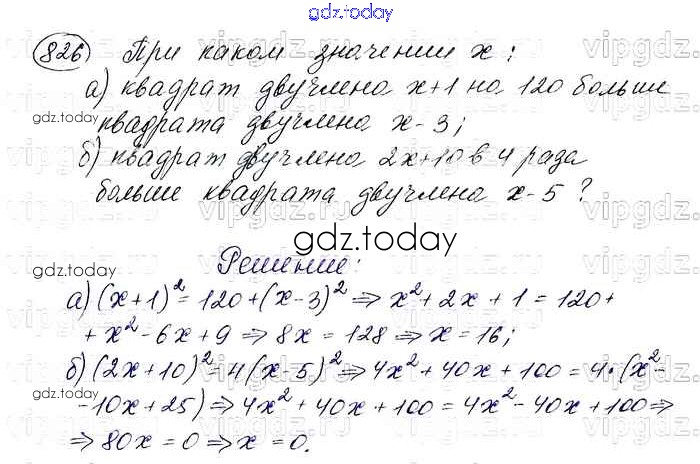 gdz.today
826 При каком значении x:
vipgdz.ru
а) квадрат двучлена x+1 на 120 больше
gdz.today
квадрата двучлена x-3;
б) квадрат двучлена 2x+10 в 4 раза
больше квадрата двучлена x-5?
gdz.today
Решение:
gdz.today
а) (x+1)²=120+(x-3)² ⇒ x²+2x+1=120+
+x²-6x+9 ⇒ 8x=128 ⇒ x=16;
б) (2x+10)²=4(x-5)² ⇒ 4x²+40x+100=4·(x²-
gdz.today
-10x+25) ⇒ 4x²+40x+100=4x²-40x+100 ⇒
⇒ 80x=0 ⇒ x=0.